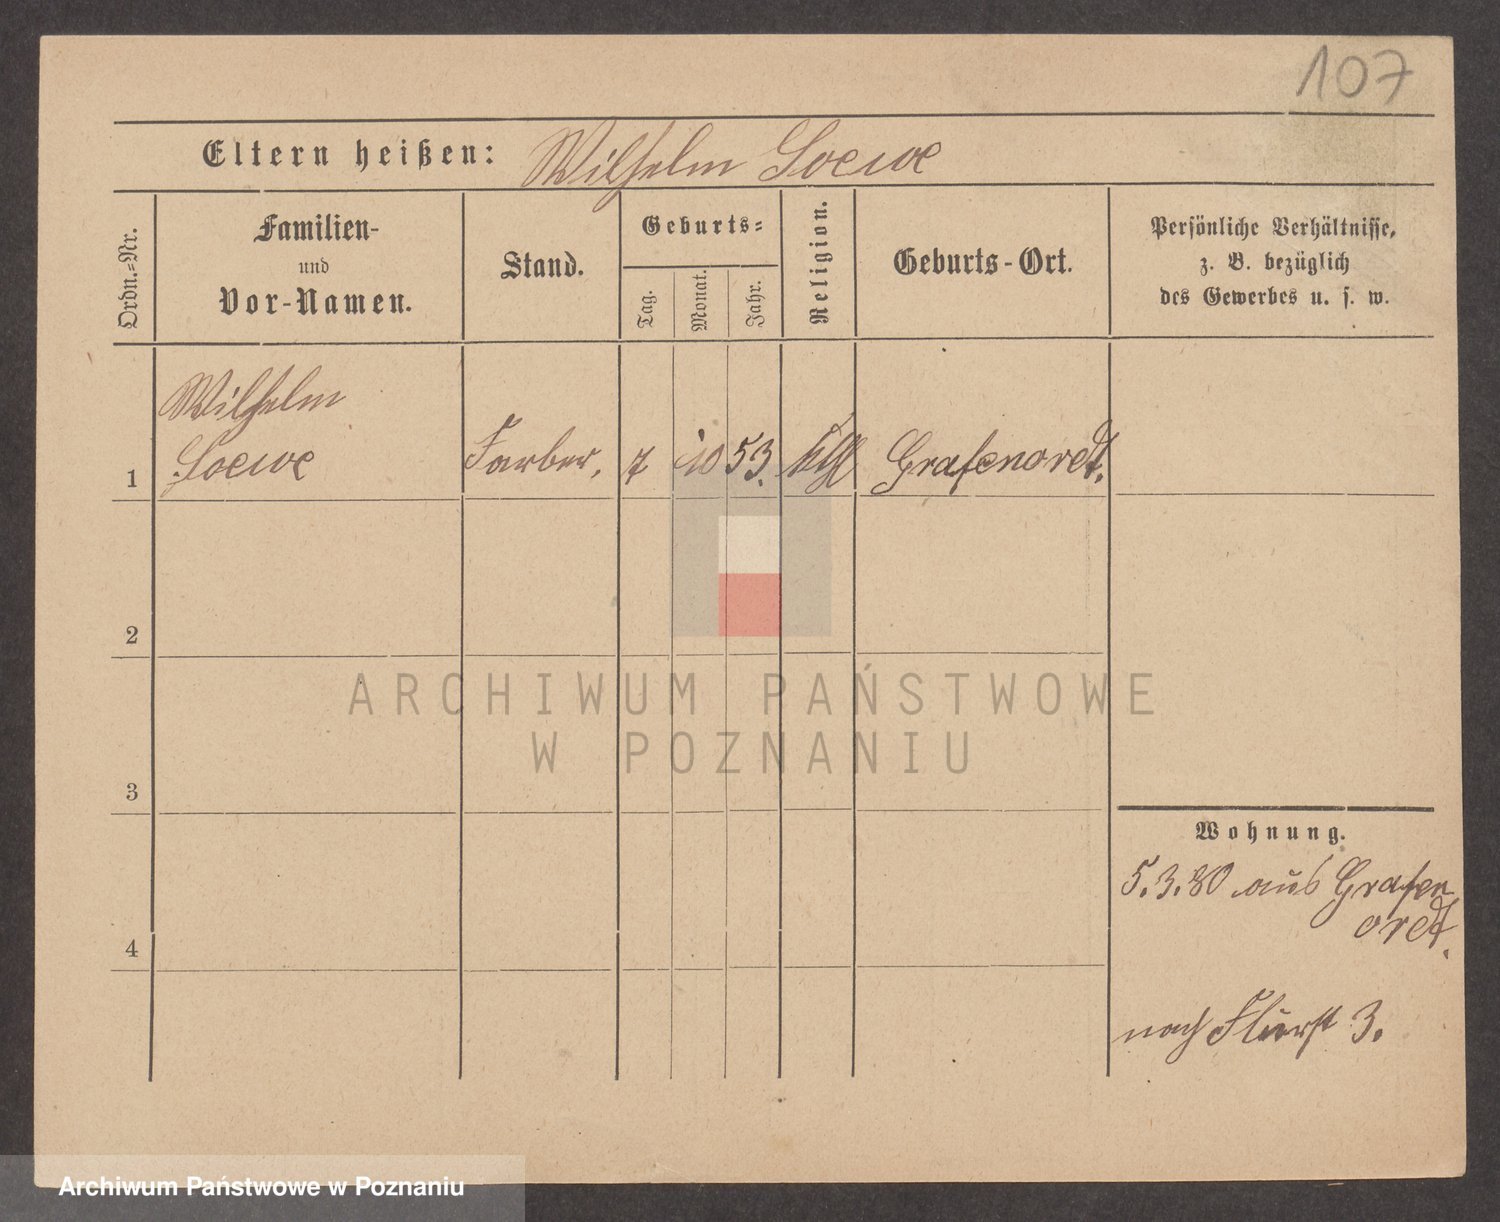 107
Eltern heißen: Wilhelm Loewe
Ordn.-Nr.
Familien-
und
Vor-Namen.
Stand.
Geburts-
Tag.
Monat.
Jahr.
Religion.
Geburts-Ort.
Persönliche Verhältnisse,
z. B. bezüglich
des Gewerbes u. s. w.
Wilhelm
1 Loewe Farber, 7 10 53. Grafenordt.
2
ARCHIWUM PAŃSTWOWE
W POZNANIU
3
Wohnung.
5.3.80 aus Grafen
ordt.
4
nach Flurst 3.
Archiwum Państwowe w Poznaniu